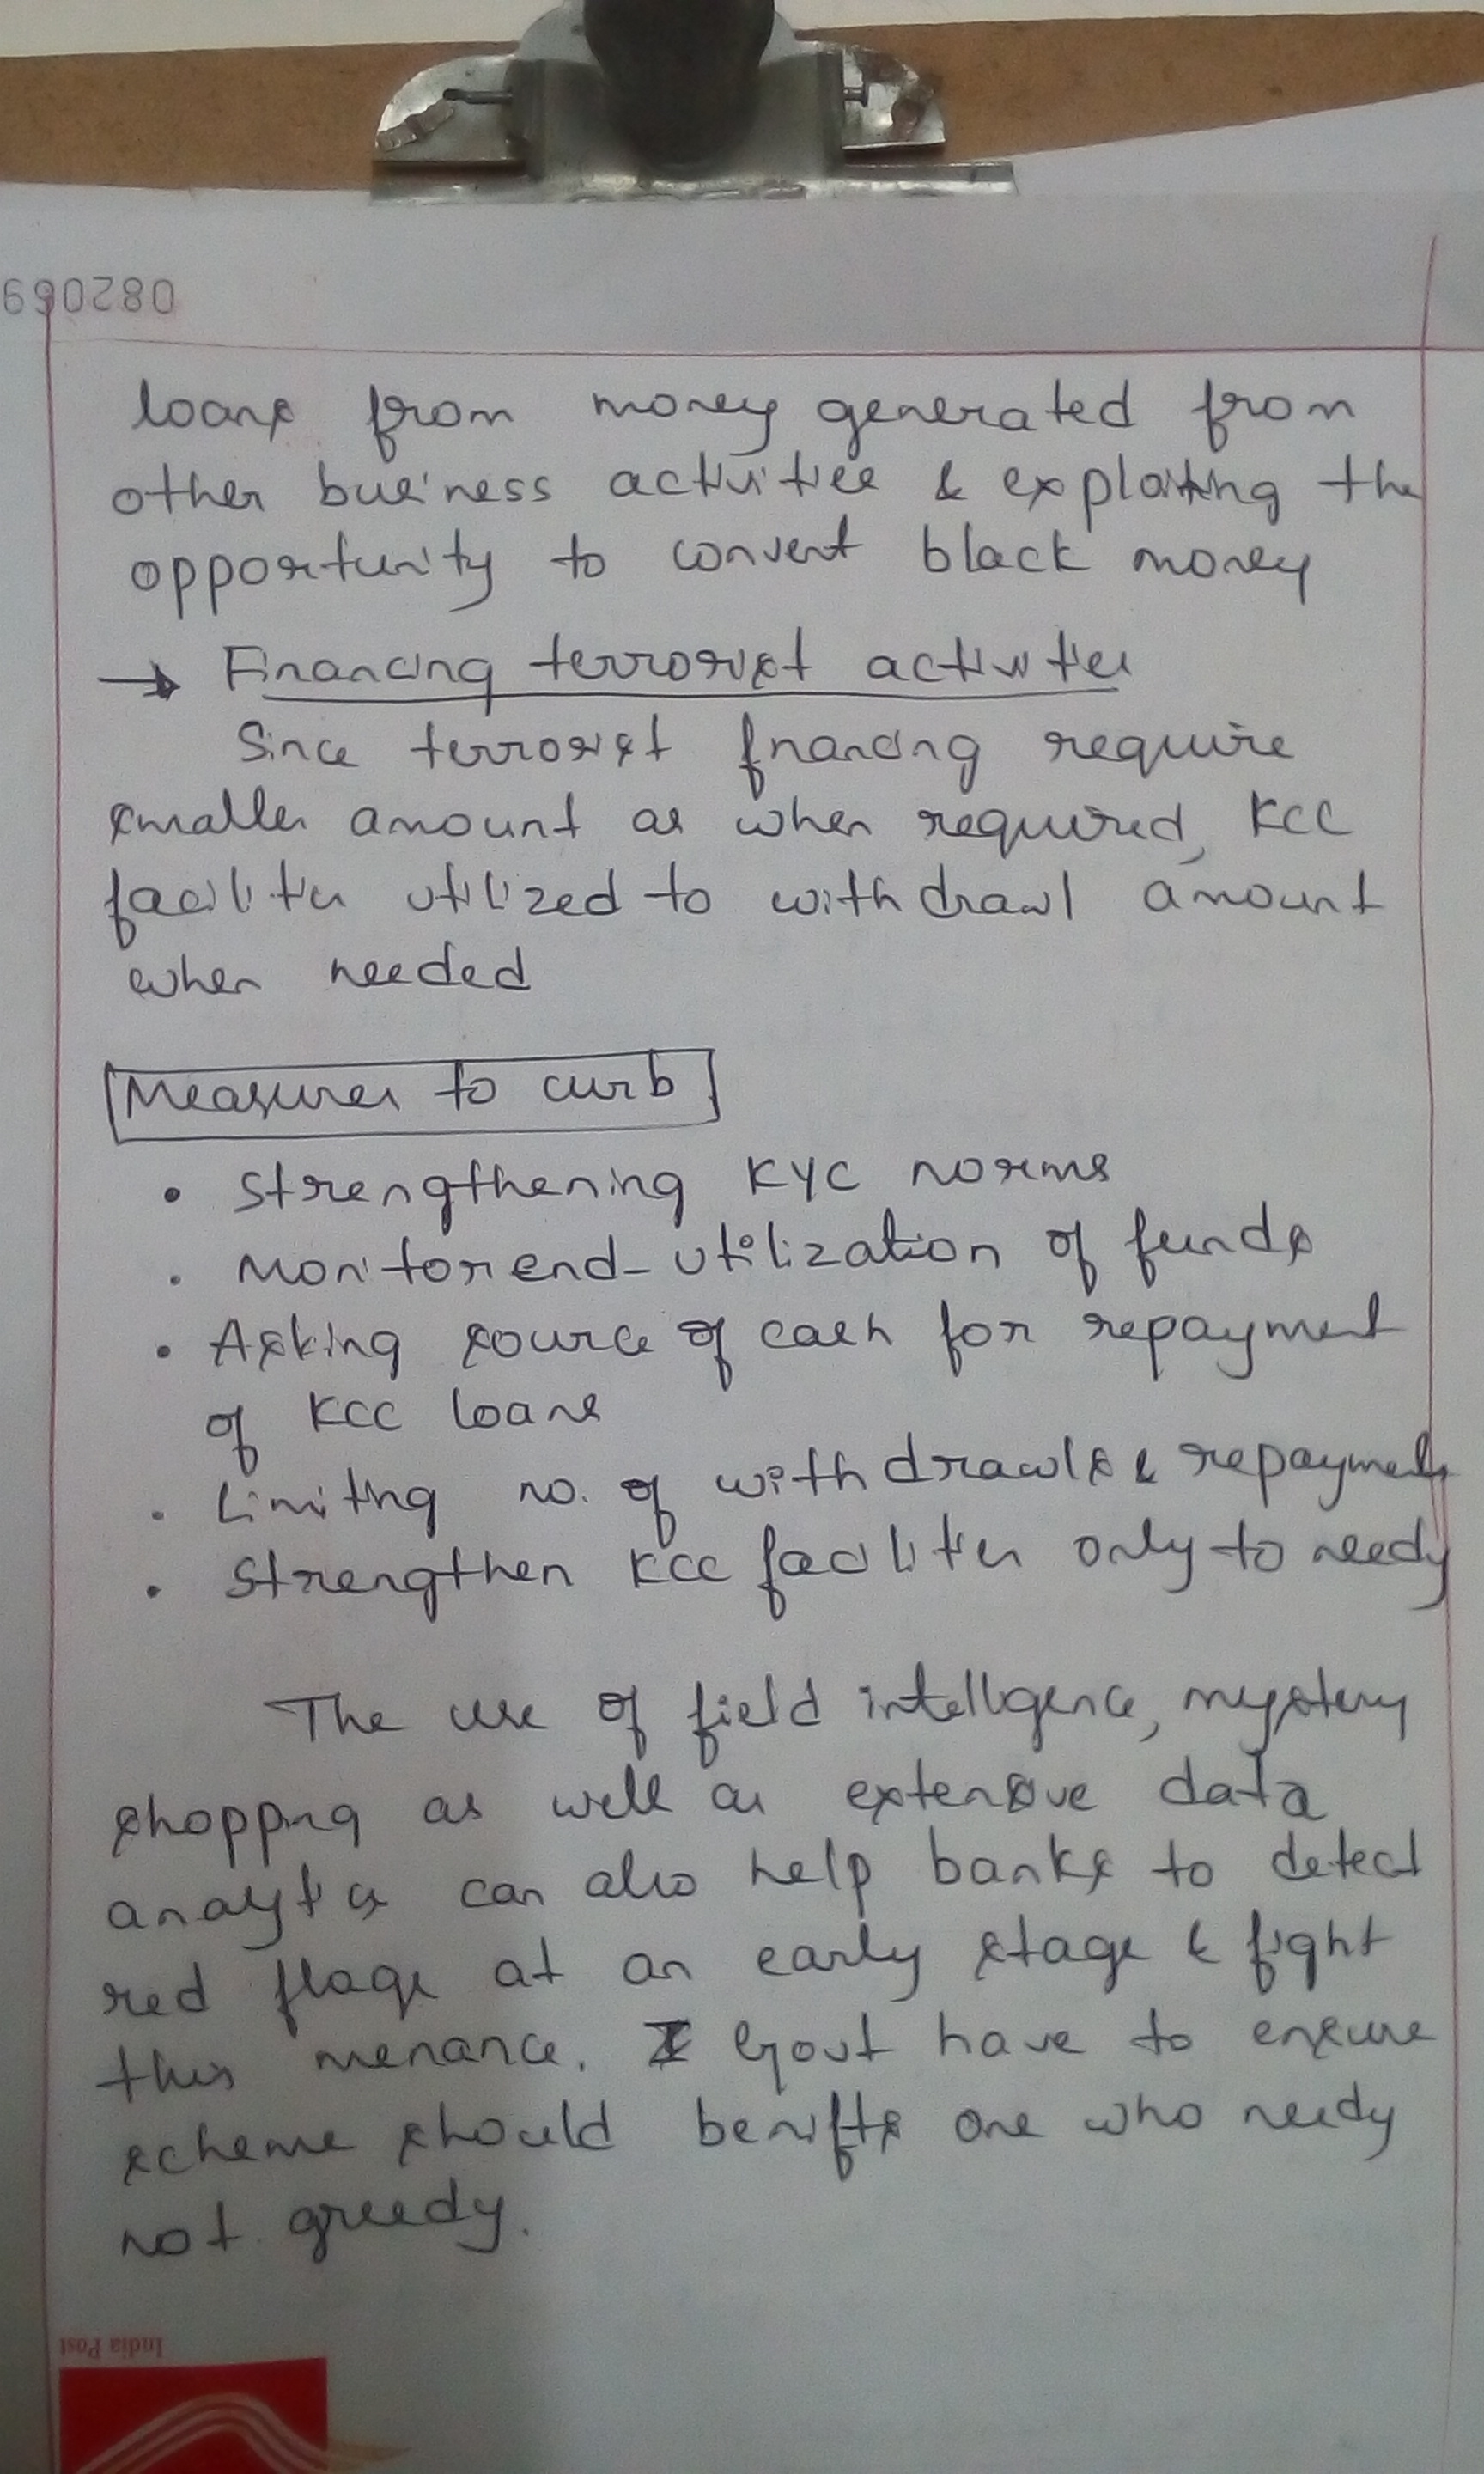 690280
loans from money generated from
other business activities & exploiting the
opportunity to convert black money
→ Financing terrorist activities
Since terrorist financing require
smaller amount as when required, KCC
facilities utilized to withdrawl amount
when needed
Measures to curb
• Strengthening KYC norms
• Monitor end-utilization of funds
• Asking source of cash for repayment
of KCC loans
• Limiting no. of withdrawls & repayments
• Strengthen KCC facilities only to needy
The use of field intelligence, mystery
shopping as well as extensive data
analytics can also help banks to detect
red flags at an early stage & fight
this menance. Govt have to ensure
scheme should benifits one who needy
not greedy.
India Post